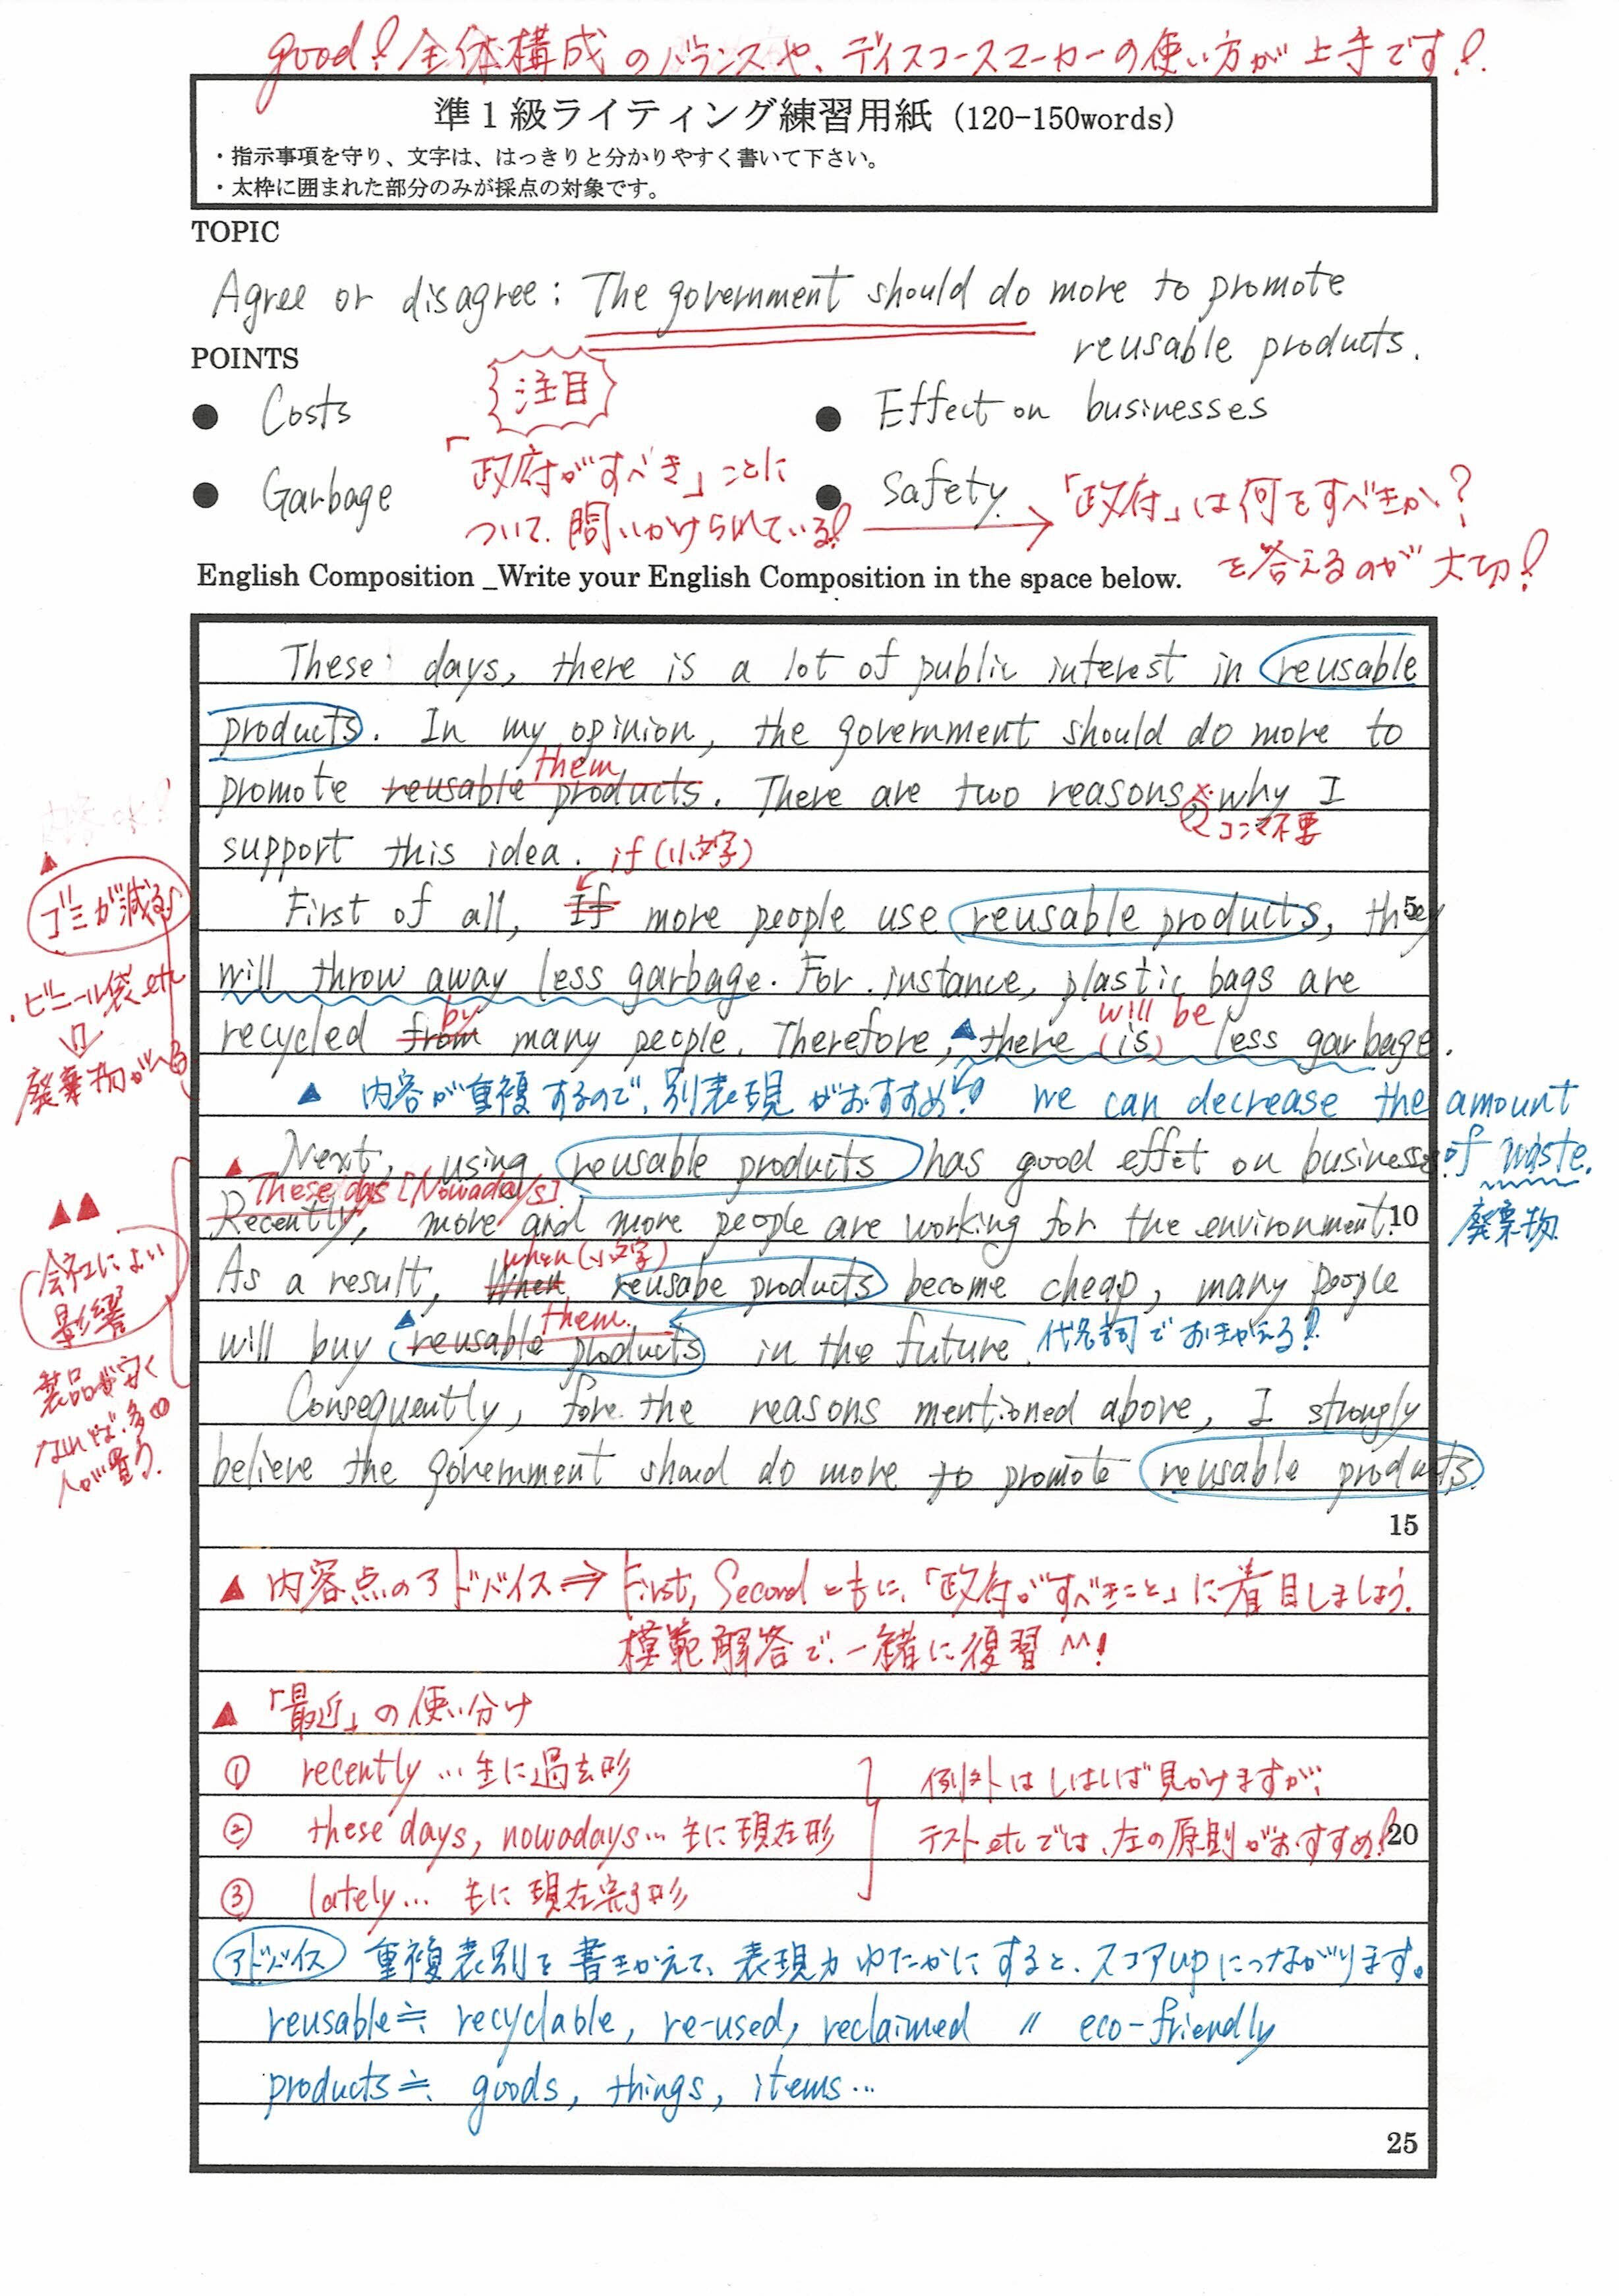 good! 全体構成のバランスや、ディスコースマーカーの使い方が上手です!
準1級ライティング練習用紙 (120-150words)
・指示事項を守り、文字は、はっきりと分かりやすく書いて下さい。
・太枠に囲まれた部分のみが採点の対象です。
TOPIC
Agree or disagree: The government should do more to promote
reusable products.
POINTS
注目
● Costs
● Effect on businesses
● Garbage
● Safety
「政府がすべき」ことに
ついて、問いかけられている!
「政府」は何をすべきか?
を答えるのが大切!
English Composition _Write your English Composition in the space below.
These days, there is a lot of public interest in reusable
products. In my opinion, the government should do more to
them
promote reusable products. There are two reasons, why I
コンマ不要
support this idea.
if (小文字)
First of all, If more people use reusable products, they
5
will throw away less garbage. For instance, plastic bags are
by
will be
recycled from many people. Therefore, there (is) less garbage.
▲ 内容が重複するので、別表現がおすすめ! we can decrease the amount
of waste.
廃棄物
▲
ゴミが減る
・ビニール袋etc
⇩
廃棄物がへる
▲ Next, using reusable products has good effet on business
These days [Nowadays]
Recently, more and more people are working for the environment.
10
when (小文字)
As a result, When reusabe products become cheap, many people
them.
will buy reusable products in the future.
代名詞でおきかえる!
▲▲
会社によい
影響
製品が安く
なれば、多の
人が買う.
Consequently, fore the reasons mentioned above, I strongly
believe the government shoud do more to promote reusable products
15
▲ 内容点のアドバイス⇒ First, Second ともに、「政府がすべきこと」に着目しましょう.
模範解答で、一緒に復習^^!
▲ 「最近」の使い分け
① recently … 主に過去形
② these days, nowadays… 主に現在形
③ lately… 主に現在完了形
例外はしばしば見かけますが、
テストetcでは、左の原則がおすすめ!
20
アドバイス 重複表別を書きかえて、表現力ゆたかにすると、スコアupにつながります。
reusable≒ recyclable, re-used, reclaimed 〃 eco-friendly
products≒ goods, things, items…
25